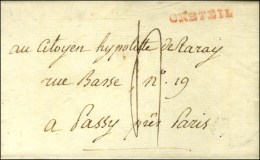 CRETEIL
au Citoyen hypolitte de Raray
rue Basse, n.º 19
a Passy près Paris